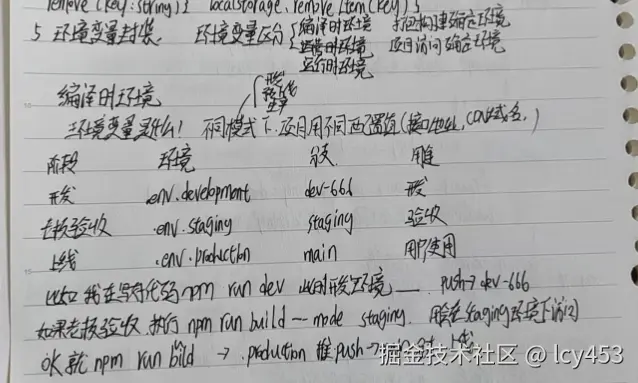 remove(key:string){ localStorage.removeItem(key)}
5 环境变量封装. 环境变量区分 编译时环境 打包构建确定环境
运行时环境 项目访问确定环境
运行时环境
开发
生产
编译时环境
环境变量是什么! 不同模式下,项目用不同配置值(接口地址,CDN域名,)
阶段 环境
开发 .env.development dev-666 开发
老板验收 .env.staging staging 验收
上线 .env.production main 用户使用
比如 我在写代码 npm run dev 此时开发环境 push→dev-666
如果老板验收 执行 npm run build --mode staging. 能在staging环境下访问
OK 就 npm run bild → .production 推push→
掘金技术社区 @ lcy453